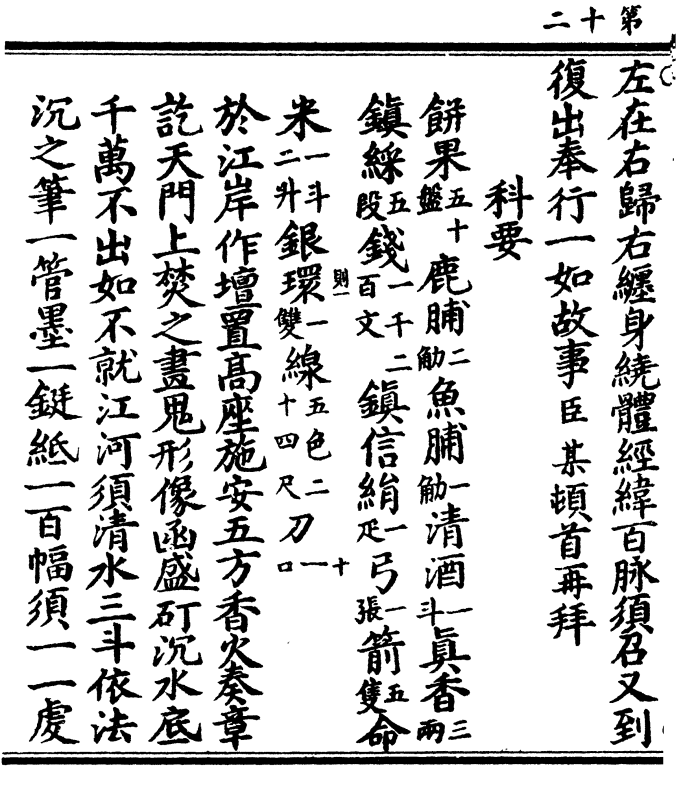 第十二
左在右歸右纏身繞體經緯百脉須召又到
復出奉行一如故事臣某頓首再拜
科要
餅果五十盤鹿脯二觔魚脯一觔清酒一斗真香三兩
鎮綵五段錢一千二百文鎮信絹一疋弓一張箭五隻命
米一斗二升銀環一雙則一線五色二十四尺刀一口十
於江岸作壇置高座施安五方香火奏章
訖天門上焚之畫鬼形像函盛矴沉水底
千萬不出如不就江河須清水三斗依法
沉之筆一管墨一鋌紙一百幅須一一處